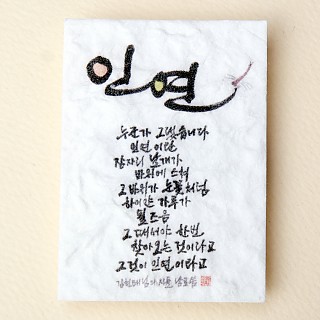 인연
누군가 그랬습니다
인연이란
잠자리 날개가
바위에 스쳐
그 바위가 눈꽃처럼
하이얀 가루가
될 즈음
그때서야 한번
찾아오는 것이라고
그것이 인연이라고